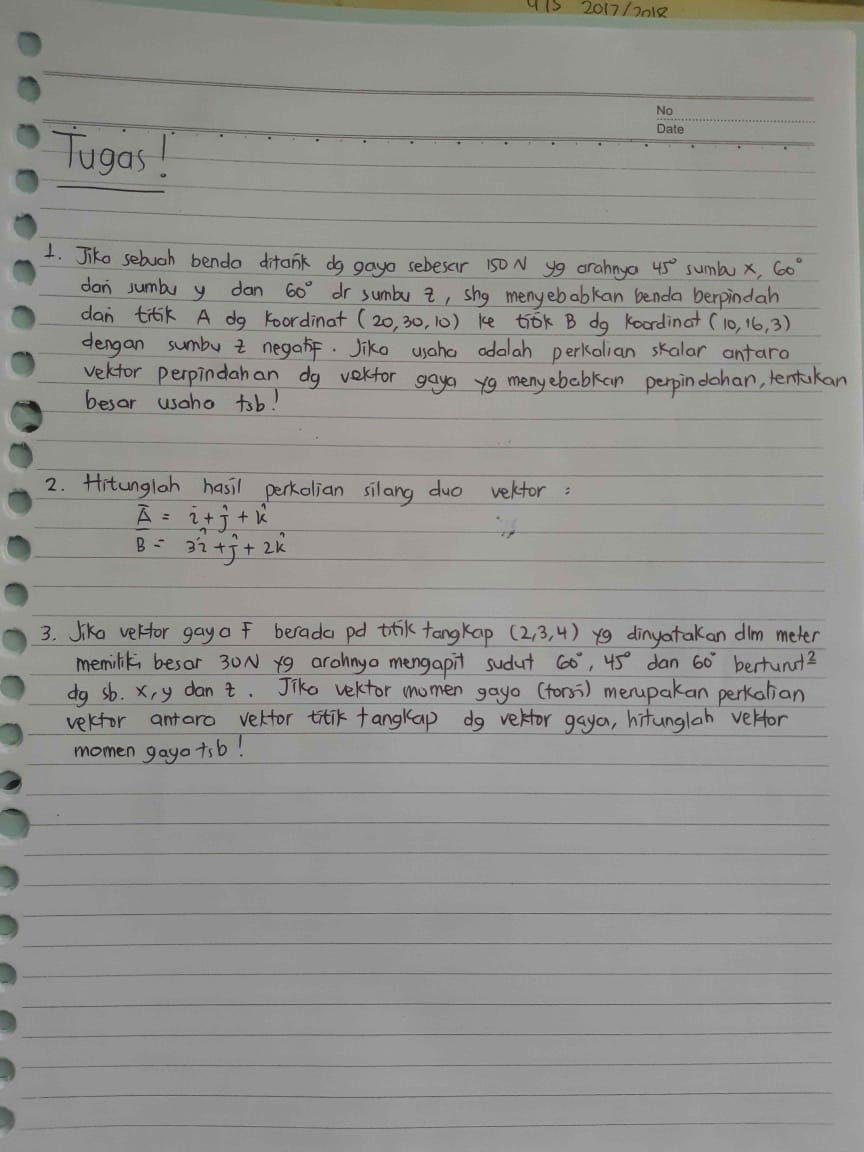 UTS 2017/2018
No
Date
Tugas!
1. Jika sebuah benda ditarik dg gaya sebesar 150 N yg arahnya 45° sumbu x, 60°
dari sumbu y dan 60° dr sumbu z, shg menyebabkan benda berpindah
dari titik A dg koordinat (20,30,10) ke titik B dg koordinat (10,16,3)
dengan sumbu z negatif. Jika usaha adalah perkalian skalar antara
vektor perpindahan dg vektor gaya yg menyebabkan perpindahan, tentukan
besar usaha tsb!
2. Hitunglah hasil perkalian silang dua vektor :
A̅ = î + ĵ + k̂
B̅ = 3î + ĵ + 2k̂
3. Jika vektor gaya F berada pd titik tangkap (2,3,4) yg dinyatakan dlm meter
memiliki besar 30N yg arahnya mengapit sudut 60°, 45° dan 60° berturut²
dg sb. x, y dan z. Jika vektor momen gaya (torsi) merupakan perkalian
vektor antara vektor titik tangkap dg vektor gaya, hitunglah vektor
momen gaya tsb!